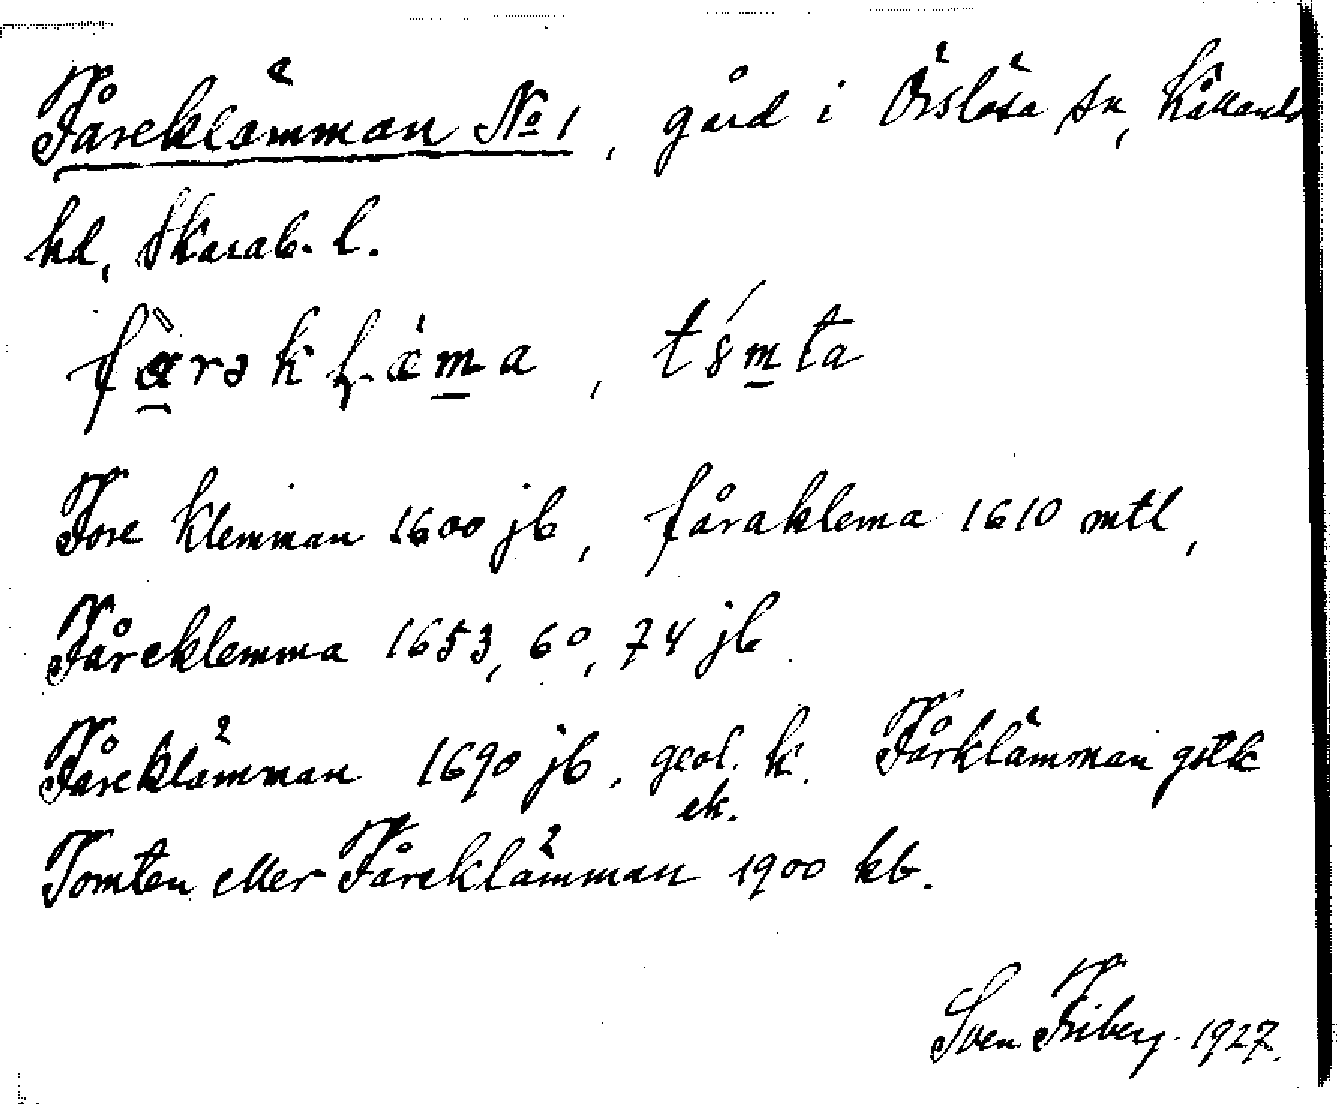 Fåreklämman No 1, gård i Örslösa sn, Kållands
hd, Skarab. l.
Fore klemman 1600 jb, fåraklema 1610 mtl,
Fåreklemma 1653, 60, 74 jb
Fåreklämman 1690 jb, geol. k. Fårklämman
ek.
Tomten eller Fåreklämman 1900 kb.
Sven Friberg 1927.